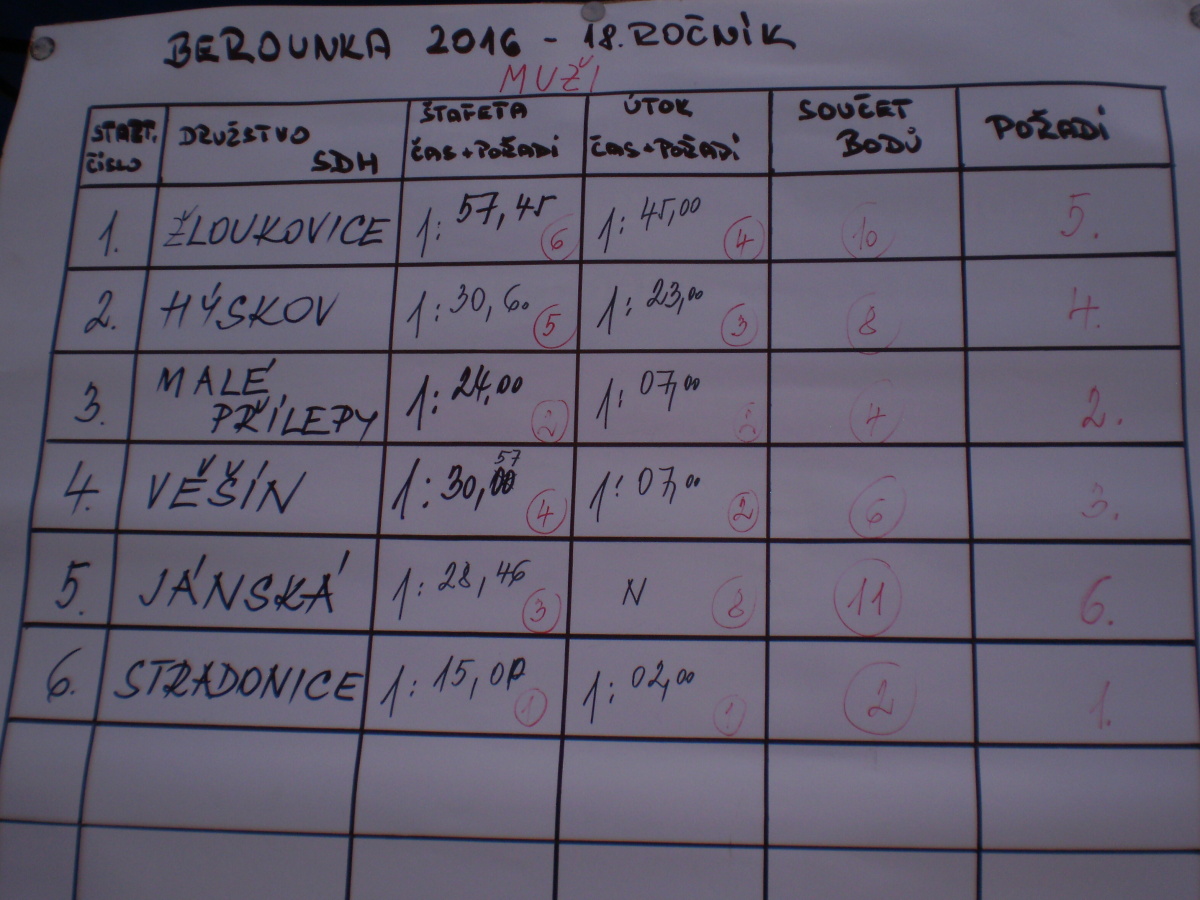 BEROUNKA 2016 - 18. ROČNÍK
MUŽI
START. ČÍSLO DRUŽSTVO SDH ŠTAFETA ČAS+POŘADÍ ÚTOK ČAS+POŘADÍ SOUČET BODŮ POŘADÍ
1. ŽLOUKOVICE 1:57,45 6 1:45,00 4 10 5.
2. HÝSKOV 1:30,60 5 1:23,00 3 8 4.
3. MALÉ PŘÍLEPY 1:24,00 2 1:07,00 2 4 2.
4. VĚŠÍN 1:30,57 4 1:07,00 2 6 3.
5. JÁNSKÁ 1:28,46 3 N 8 11 6.
6. STRADONICE 1:15, 1 1:02,00 1 2 1.